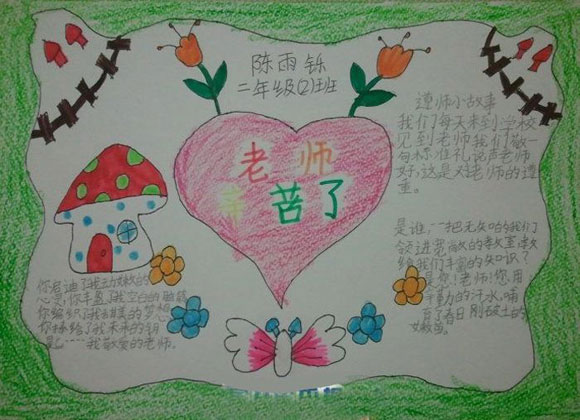 陈雨铄
二年级(2)班
老师
辛苦了
遵师小故事
我们每天来到学校
见到老师我们敬一
句标准礼说声老师
好,这是对老师的遵
重。
是谁,一把无知的我们
领进宽敞的教室教
给我们丰富的知识?
是您!老师!您用
辛勤的汗水,哺
育了春日刚破土的
嫩苗。
你启迪了我幼嫩的
心灵,你丰盈了我空白的脑袋
你编织了我甜美的梦想
你描绘了我未来的钥
匙……我敬爱的老师。